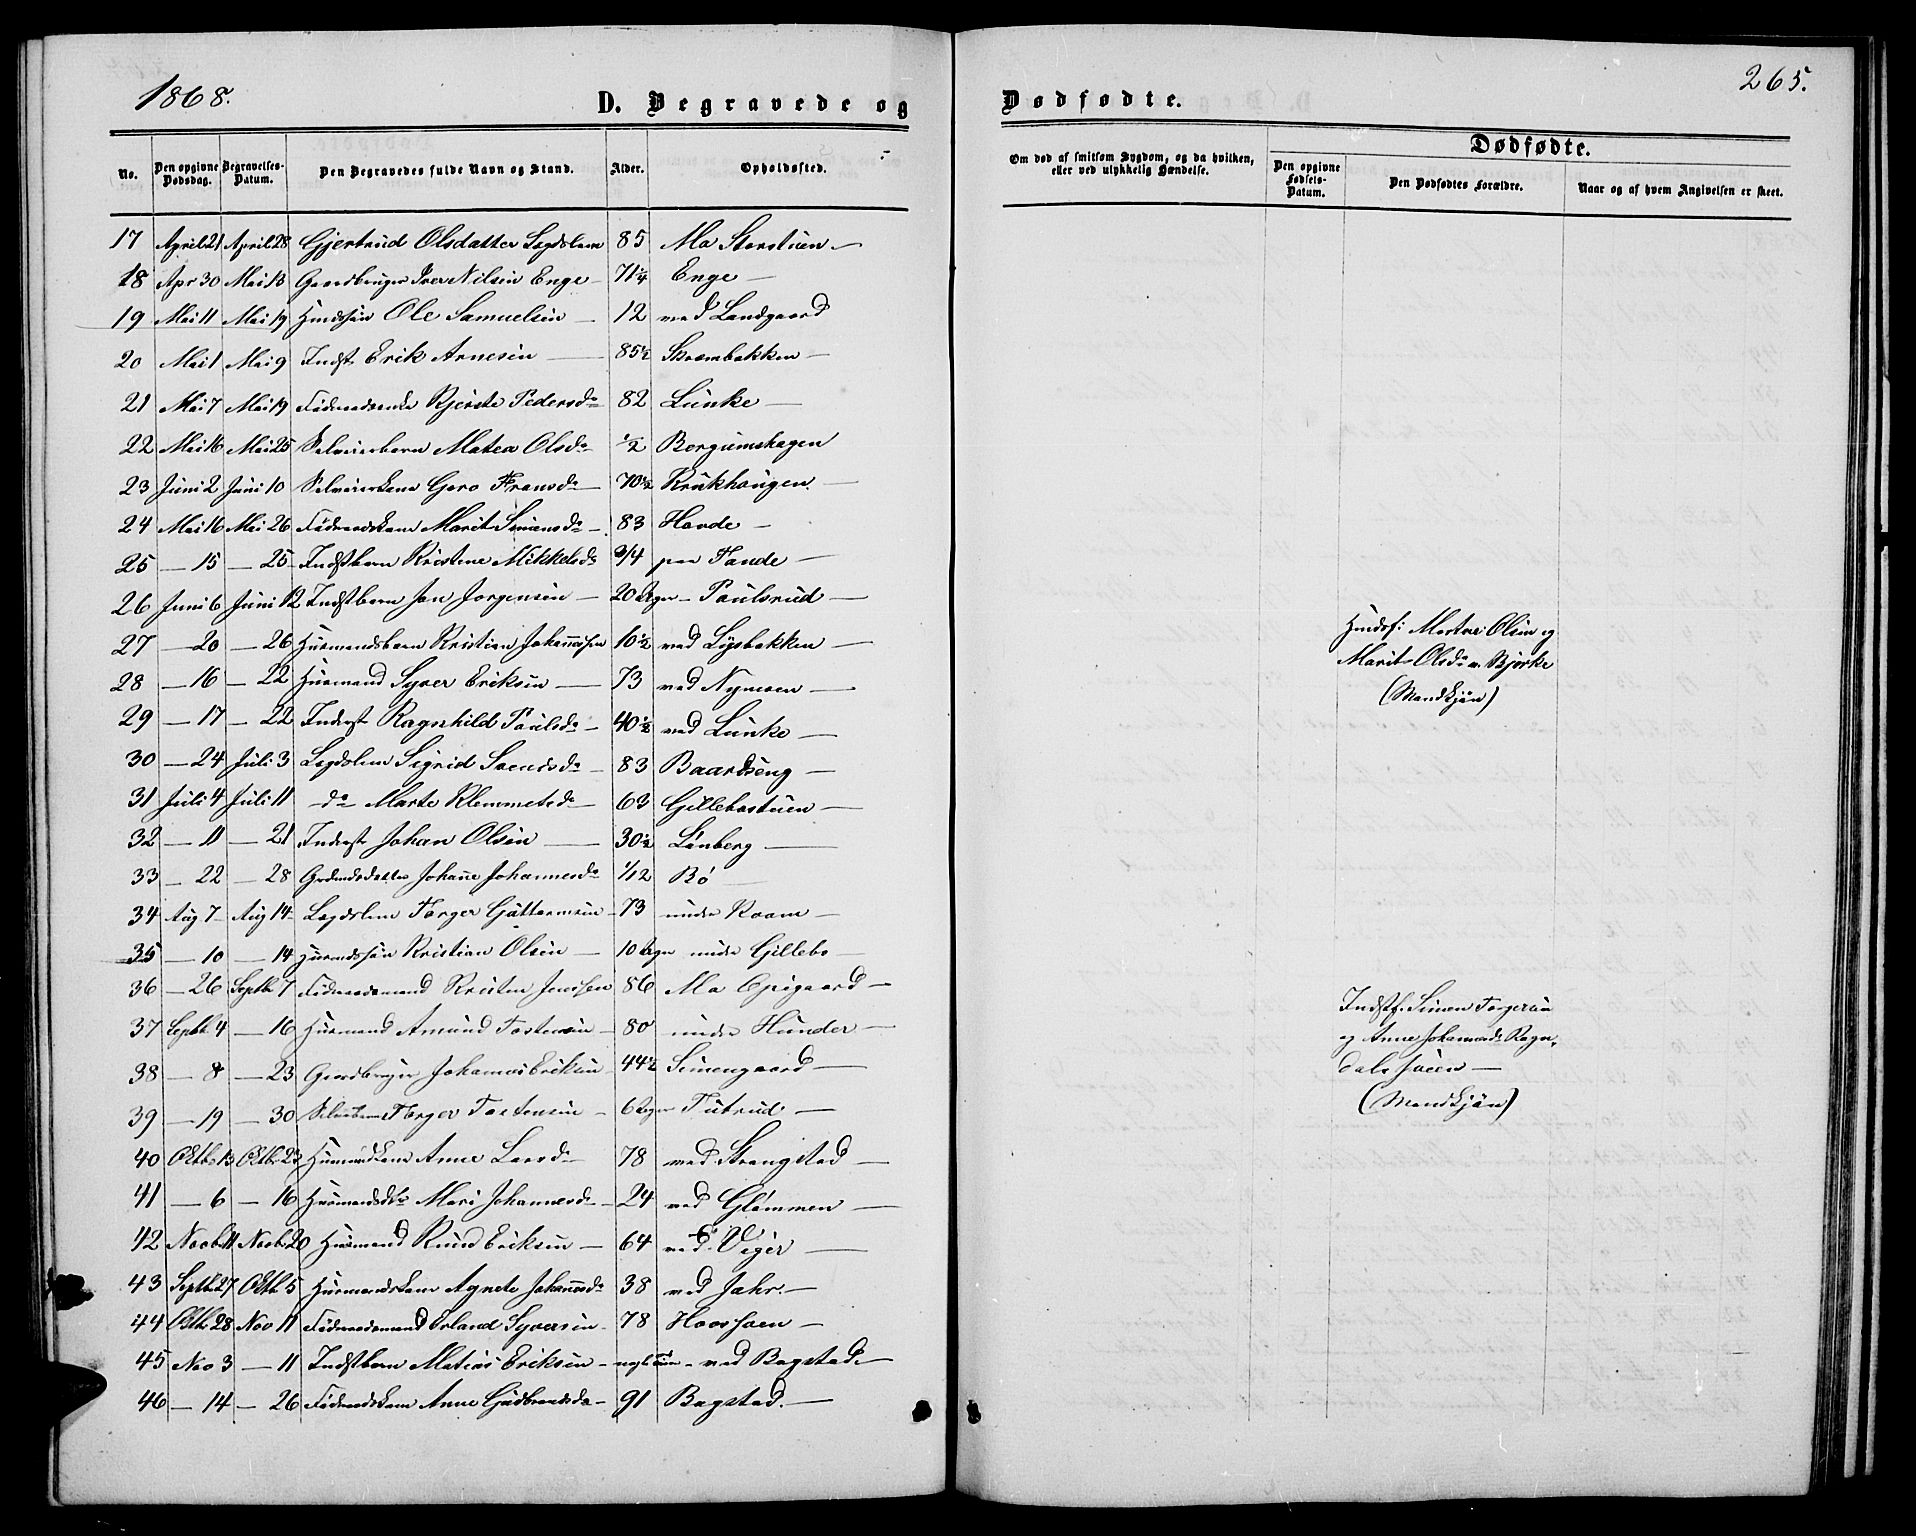 1868.
D. Begravede og
No. Den opgivne Dødsdag. Begravelses-Datum. Den Begravedes fulde Navn og Stand. Alder. Opholdssted.
17 April 21 April 28 Gjertrud Olsdatter Lægdslem 85 Ma Storstuen —
18 Apr 30 Mai 13 Gaardbruger Iver Nilsen Enge — 71 1/4 Enge —
19 Mai 11 Mai 19 Ole Samuelsen — 12 ved Landgaard
20 Mai 1 Mai 9 Indst Erik Arnesen — 85 1/2 Skræmbakken —
21 Mai 7 Mai 19 Føderaadsenke Kjersti Pedersda 82 Lunke —
22 Mai 16 Mai 25 Selveierbarn Matea Olsda 1/2 Borgumshagen
23 Juni 2 Juni 10 Selveierkone Goro Fransda — 70 1/2 Krukhaugen —
24 Mai 16 Mai 26 Føderaadskone Marit Simensda — 83 Hovde —
25 — 15 — 25 Indstbarn Kristine Mikkelsda 3/4 paa Tande —
26 Juni 6 Juni 12 Indstbarn Jon Jorgensen — 20 Dage — Paulsrud —
27 — 20 — 26 Husmandsbarn Kristian Johannessen 10 1/2 ved Lysbakken —
28 — 16 — 22 Husmand Syver Eriksen — 73 ved Nymoen —
29 — 17 — 22 Inderst Ragnhild Paulsda — 40 1/2 ved Lunke —
30 — 24 Juli 3 Lægdslem Sigrid Svendsda — 83 Baardseng —
31 Juli 4 Juli 11 — do — Marte Klemmetsda — 63 Gillebostuen —
32 — 11 — 21 Inderst Johan Olsen — 30 1/2 Lønberg —
33 — 22 — 28 Johanne Johannesda 1/12 Bø —
34 Aug 7 Aug 14 Lægdslem Torger Guttormsen — 73 under Roam —
35 — 10 — 14 Husmdssøn Kristian Olsen — 10 Dage under Gillebo —
36 — 26 Septbr 7 Føderaadsmand Kristen Jenssen 86 Ma Opigaard —
37 Septbr 4 — 16 Husmand Amund Tostensen — 80 under Hunder —
38 — 8 — 23 Gaardbruger Johannes Eriksen — 44 1/2 Simengaard —
39 — 19 — 30 Torger Tostensen — 6 Dage Tutrud —
40 Octbr 13 Octbr 23 Husmandskone Anne Larsda — 78 ved Strangstad —
41 — 6 — 16 Mari Johannesda — 24 ved Glømmen —
42 Novbr 11 Novbr 20 Husmand Knud Eriksen — 64 ved Veger —
43 Septbr 27 Octb 5 Husmandskone Agnete Johannesda 38 ved Jahr —
44 Octbr 28 Nov 11 Føderaadsmand Erland Syversen — 78 Hovshoen —
45 Nov 3 — 11 Indstbarn Matias Eriksen — ved Bagstad —
46 — 14 — 26 Føderaadskone Anne Gudbrandsda — 91 Bagstad —
265.
Dødfødte.
Om død af smitsom Sygdom, og da hvilken, eller ved ulykkelig Hændelse.
Dødfødte.
Den opgivne Fødsels-Datum. Den Dødfødtes Forældre. Naar og af hvem Angivelsen er skeet.
Husmdsf: Martin Olsen og
Marit Olsda v. Bjerke
(Mandkjøn)
Indstf. Simen Torgersen
og Anne Johannesda Ragn-
dalssveen —
(Mandkjøn)